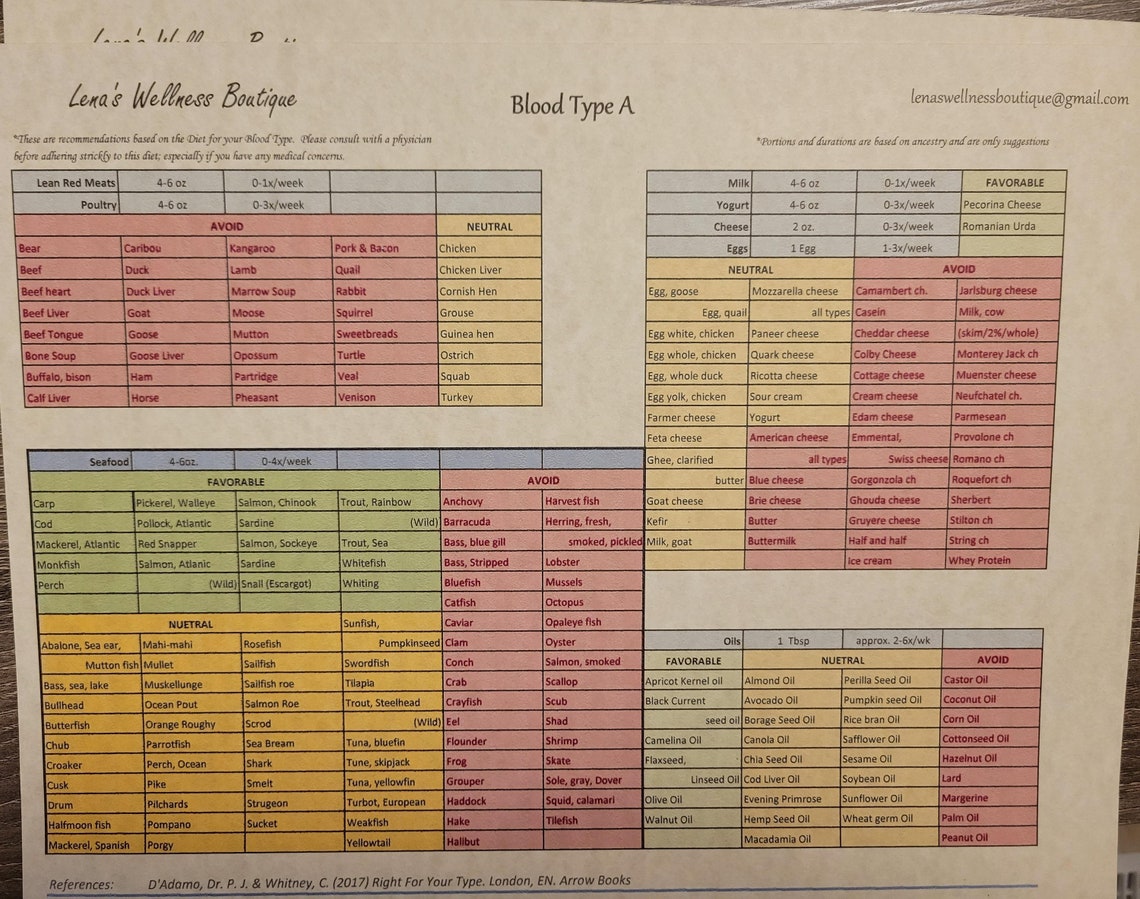 Lena's Wellness Boutique
Blood Type A
lenaswellnessboutique@gmail.com
*These are recommendations based on the Diet for your Blood Type. Please consult with a physician
before adhering strickly to this diet; especially if you have any medical concerns.
*Portions and durations are based on ancestry and are only suggestions
Lean Red Meats 4-6 oz 0-1x/week
Poultry 4-6 oz 0-3x/week
AVOID NEUTRAL
Bear Caribou Kangaroo Pork & Bacon Chicken
Beef Duck Lamb Quail Chicken Liver
Beef heart Duck Liver Marrow Soup Rabbit Cornish Hen
Beef Liver Goat Moose Squirrel Grouse
Beef Tongue Goose Mutton Sweetbreads Guinea hen
Bone Soup Goose Liver Opossum Turtle Ostrich
Buffalo, bison Ham Partridge Veal Squab
Calf Liver Horse Pheasant Venison Turkey
Milk 4-6 oz 0-1x/week FAVORABLE
Yogurt 4-6 oz 0-3x/week Pecorina Cheese
Cheese 2 oz. 0-3x/week Romanian Urda
Eggs 1 Egg 1-3x/week
NEUTRAL AVOID
Egg, goose Mozzarella cheese Camambert ch. Jarlsburg cheese
Egg, quail all types Casein Milk, cow
Egg white, chicken Paneer cheese Cheddar cheese (skim/2%/whole)
Egg whole, chicken Quark cheese Colby Cheese Monterey Jack ch
Egg, whole duck Ricotta cheese Cottage cheese Muenster cheese
Egg yolk, chicken Sour cream Cream cheese Neufchatel ch.
Farmer cheese Yogurt Edam cheese Parmesean
Feta cheese American cheese Emmental, Provolone ch
Ghee, clarified all types Swiss cheese Romano ch
butter Blue cheese Gorgonzola ch Roquefort ch
Goat cheese Brie cheese Ghouda cheese Sherbert
Kefir Butter Gruyere cheese Stilton ch
Milk, goat Buttermilk Half and half String ch
Ice cream Whey Protein
Seafood 4-6oz. 0-4x/week
FAVORABLE AVOID
Carp Pickerel, Walleye Salmon, Chinook Trout, Rainbow Anchovy Harvest fish
Cod Pollock, Atlantic Sardine (Wild) Barracuda Herring, fresh,
Mackerel, Atlantic Red Snapper Salmon, Sockeye Trout, Sea Bass, blue gill smoked, pickled
Monkfish Salmon, Atlanic Sardine Whitefish Bass, Stripped Lobster
Perch (Wild) Snail (Escargot) Whiting Bluefish Mussels
Catfish Octopus
NUETRAL Sunfish, Caviar Opaleye fish
Abalone, Sea ear, Mahi-mahi Rosefish Pumpkinseed Clam Oyster
Mutton fish Mullet Sailfish Swordfish Conch Salmon, smoked
Bass, sea, lake Muskellunge Sailfish roe Tilapia Crab Scallop
Bullhead Ocean Pout Salmon Roe Trout, Steelhead Crayfish Scub
Butterfish Orange Roughy Scrod (Wild) Eel Shad
Chub Parrotfish Sea Bream Tuna, bluefin Flounder Shrimp
Croaker Perch, Ocean Shark Tune, skipjack Frog Skate
Cusk Pike Smelt Tuna, yellowfin Grouper Sole, gray, Dover
Drum Pilchards Strugeon Turbot, European Haddock Squid, calamari
Halfmoon fish Pompano Sucket Weakfish Hake Tilefish
Mackerel, Spanish Porgy Yellowtail Halibut
Oils 1 Tbsp approx. 2-6x/wk
FAVORABLE NUETRAL AVOID
Apricot Kernel oil Almond Oil Perilla Seed Oil Castor Oil
Black Current Avocado Oil Pumpkin seed Oil Coconut Oil
seed oil Borage Seed Oil Rice bran Oil Corn Oil
Camelina Oil Canola Oil Safflower Oil Cottonseed Oil
Flaxseed, Chia Seed Oil Sesame Oil Hazelnut Oil
Linseed Oil Cod Liver Oil Soybean Oil Lard
Olive Oil Evening Primrose Sunflower Oil Margerine
Walnut Oil Hemp Seed Oil Wheat germ Oil Palm Oil
Macadamia Oil Peanut Oil
References: D'Adamo, Dr. P. J. & Whitney, C. (2017) Right For Your Type. London, EN. Arrow Books